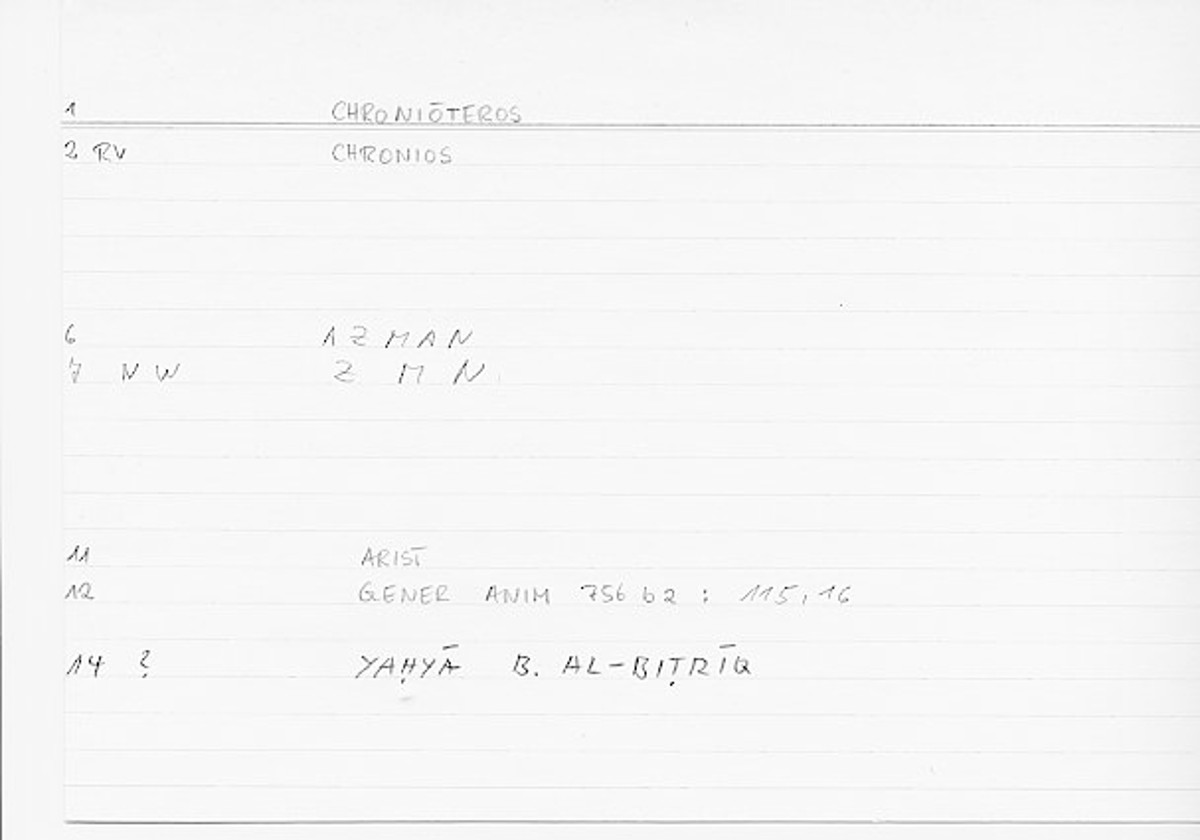 1 CHRONIŌTEROS
2 RV CHRONIOS
6 1ZMAN
7 NW ZMN
11 ARIST
12 GENER ANIM 756 b2 : 115,16
14 ? YAḤYĀ B. AL-BIṬRĪQ